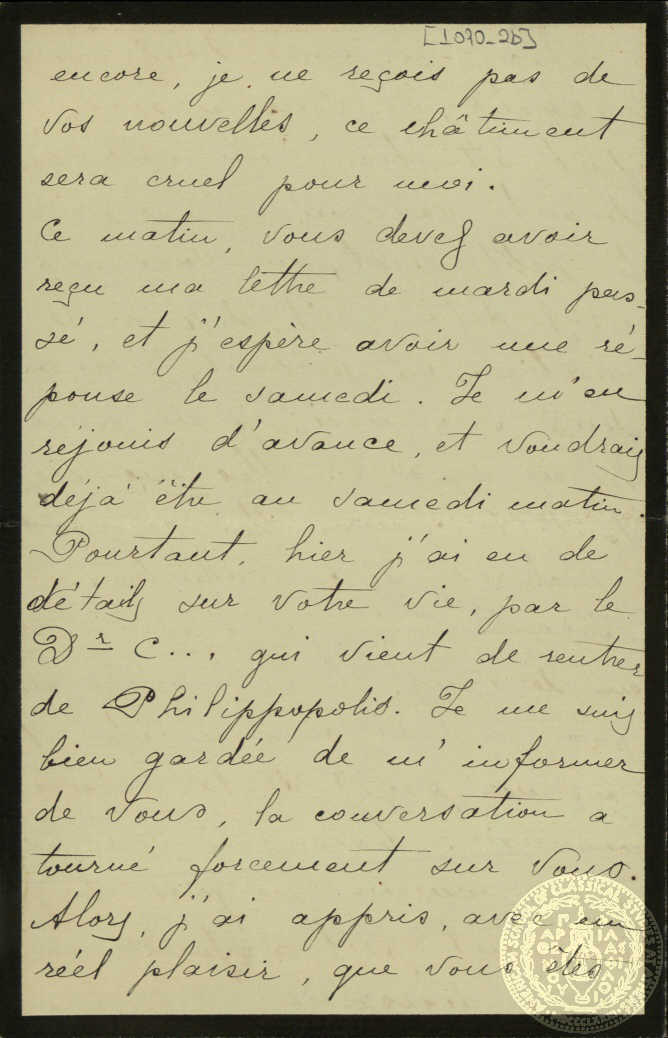 [1070-2b]
encore, je ne reçois pas de
vos nouvelles, ce châtiment
sera cruel pour moi.
Ce matin, vous devez avoir
reçu ma lettre de mardi pas-
sé, et j'espère avoir une ré-
ponse le samedi. Je m'en
réjouis d'avance, et voudrais
déjà être au samedi matin.
Pourtant, hier j'ai eu de
détails sur votre vie, par le
Dr C... qui vient de rentrer
de Philippopolis. Je me suis
bien gardée de m'informer
de vous, la conversation a
tourné forcement sur vous.
Alors, j'ai appris, avec un
réel plaisir, que vous êtes
SCHOOL OF CLASSICAL STUDIES